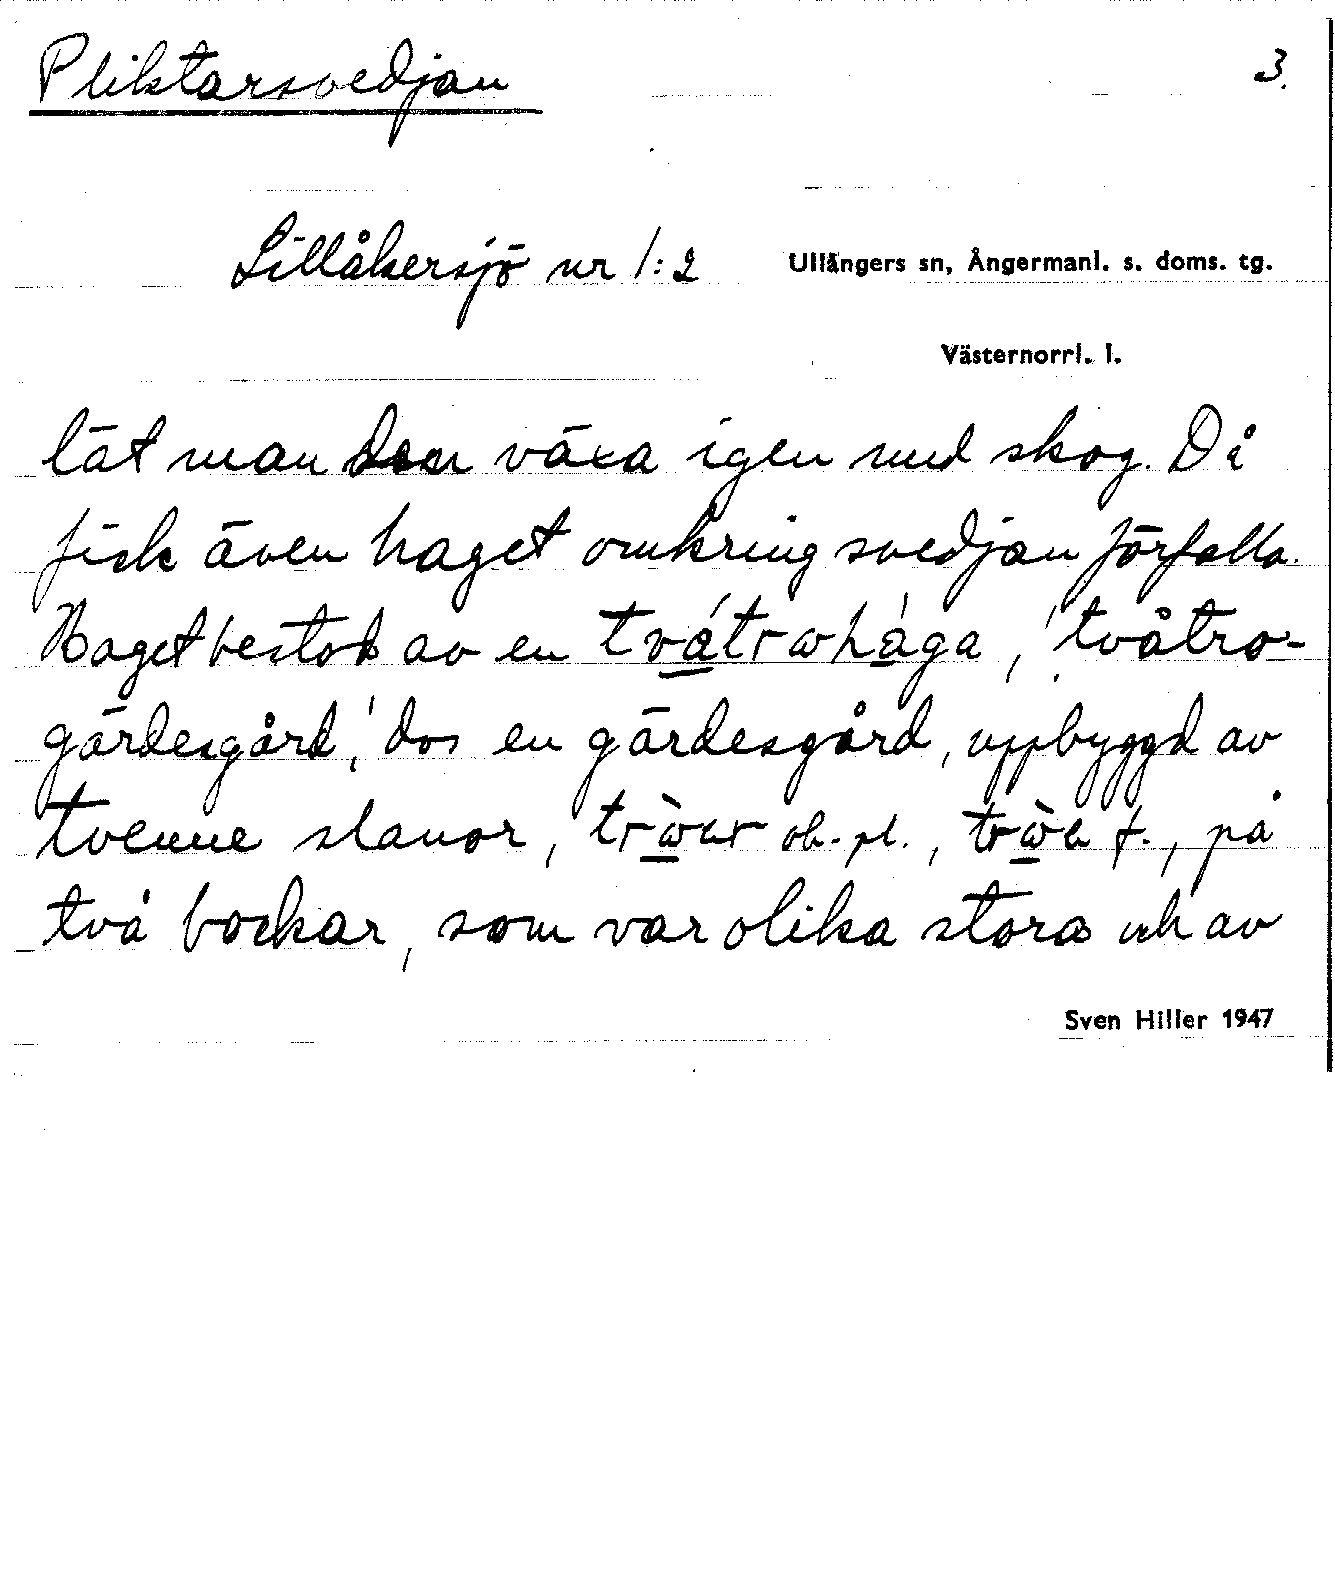 Pliktarsvedjan
3.
Lillåkersjö nr 1:2
Ullångers sn, Ångermanl. s. doms. tg.
Västernorrl. l.
lät man den växa igen med skog. Då
fick även haget omkring svedjan förfalla.
Haget bestod av en tvátrωhága, 'tvåtro-
gärdesgård,' dvs en gärdesgård, uppbyggd av
tvenne slanor, ob. pl., f., på
två bockar, som var olika stora och av
Sven Hiller 1947